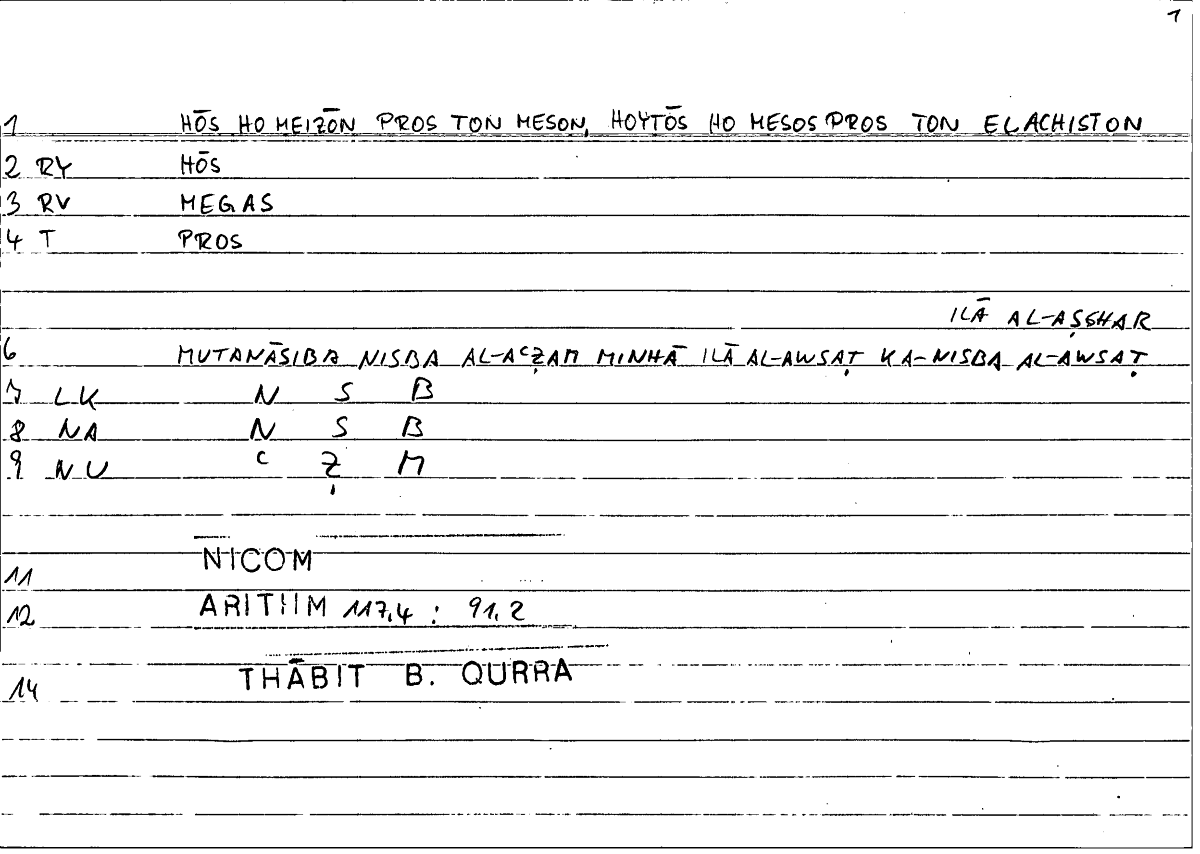 1
1 HŌS HO MEIZŌN PROS TON MESON, HOYTŌS HO MESOS PROS TON ELACHISTON
2 RY HŌS
3 RV MEGAS
4 T PROS
ILĀ AL-AṢGHAR
6 MUTANĀSIBA NISBA AL-AꜤẒAM MINHĀ ILĀ AL-AWSAṬ KA-NISBA AL-AWSAṬ
7 LK N S B
8 NA N S B
9 NU Ꜥ Ẓ M
11 NICOM
12 ARITHM 117,4 : 91,2
14 THĀBIT B. QURRA